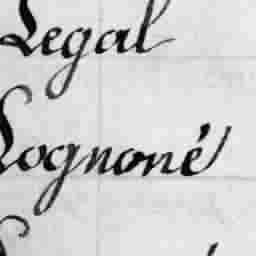 Legal
Lognoné